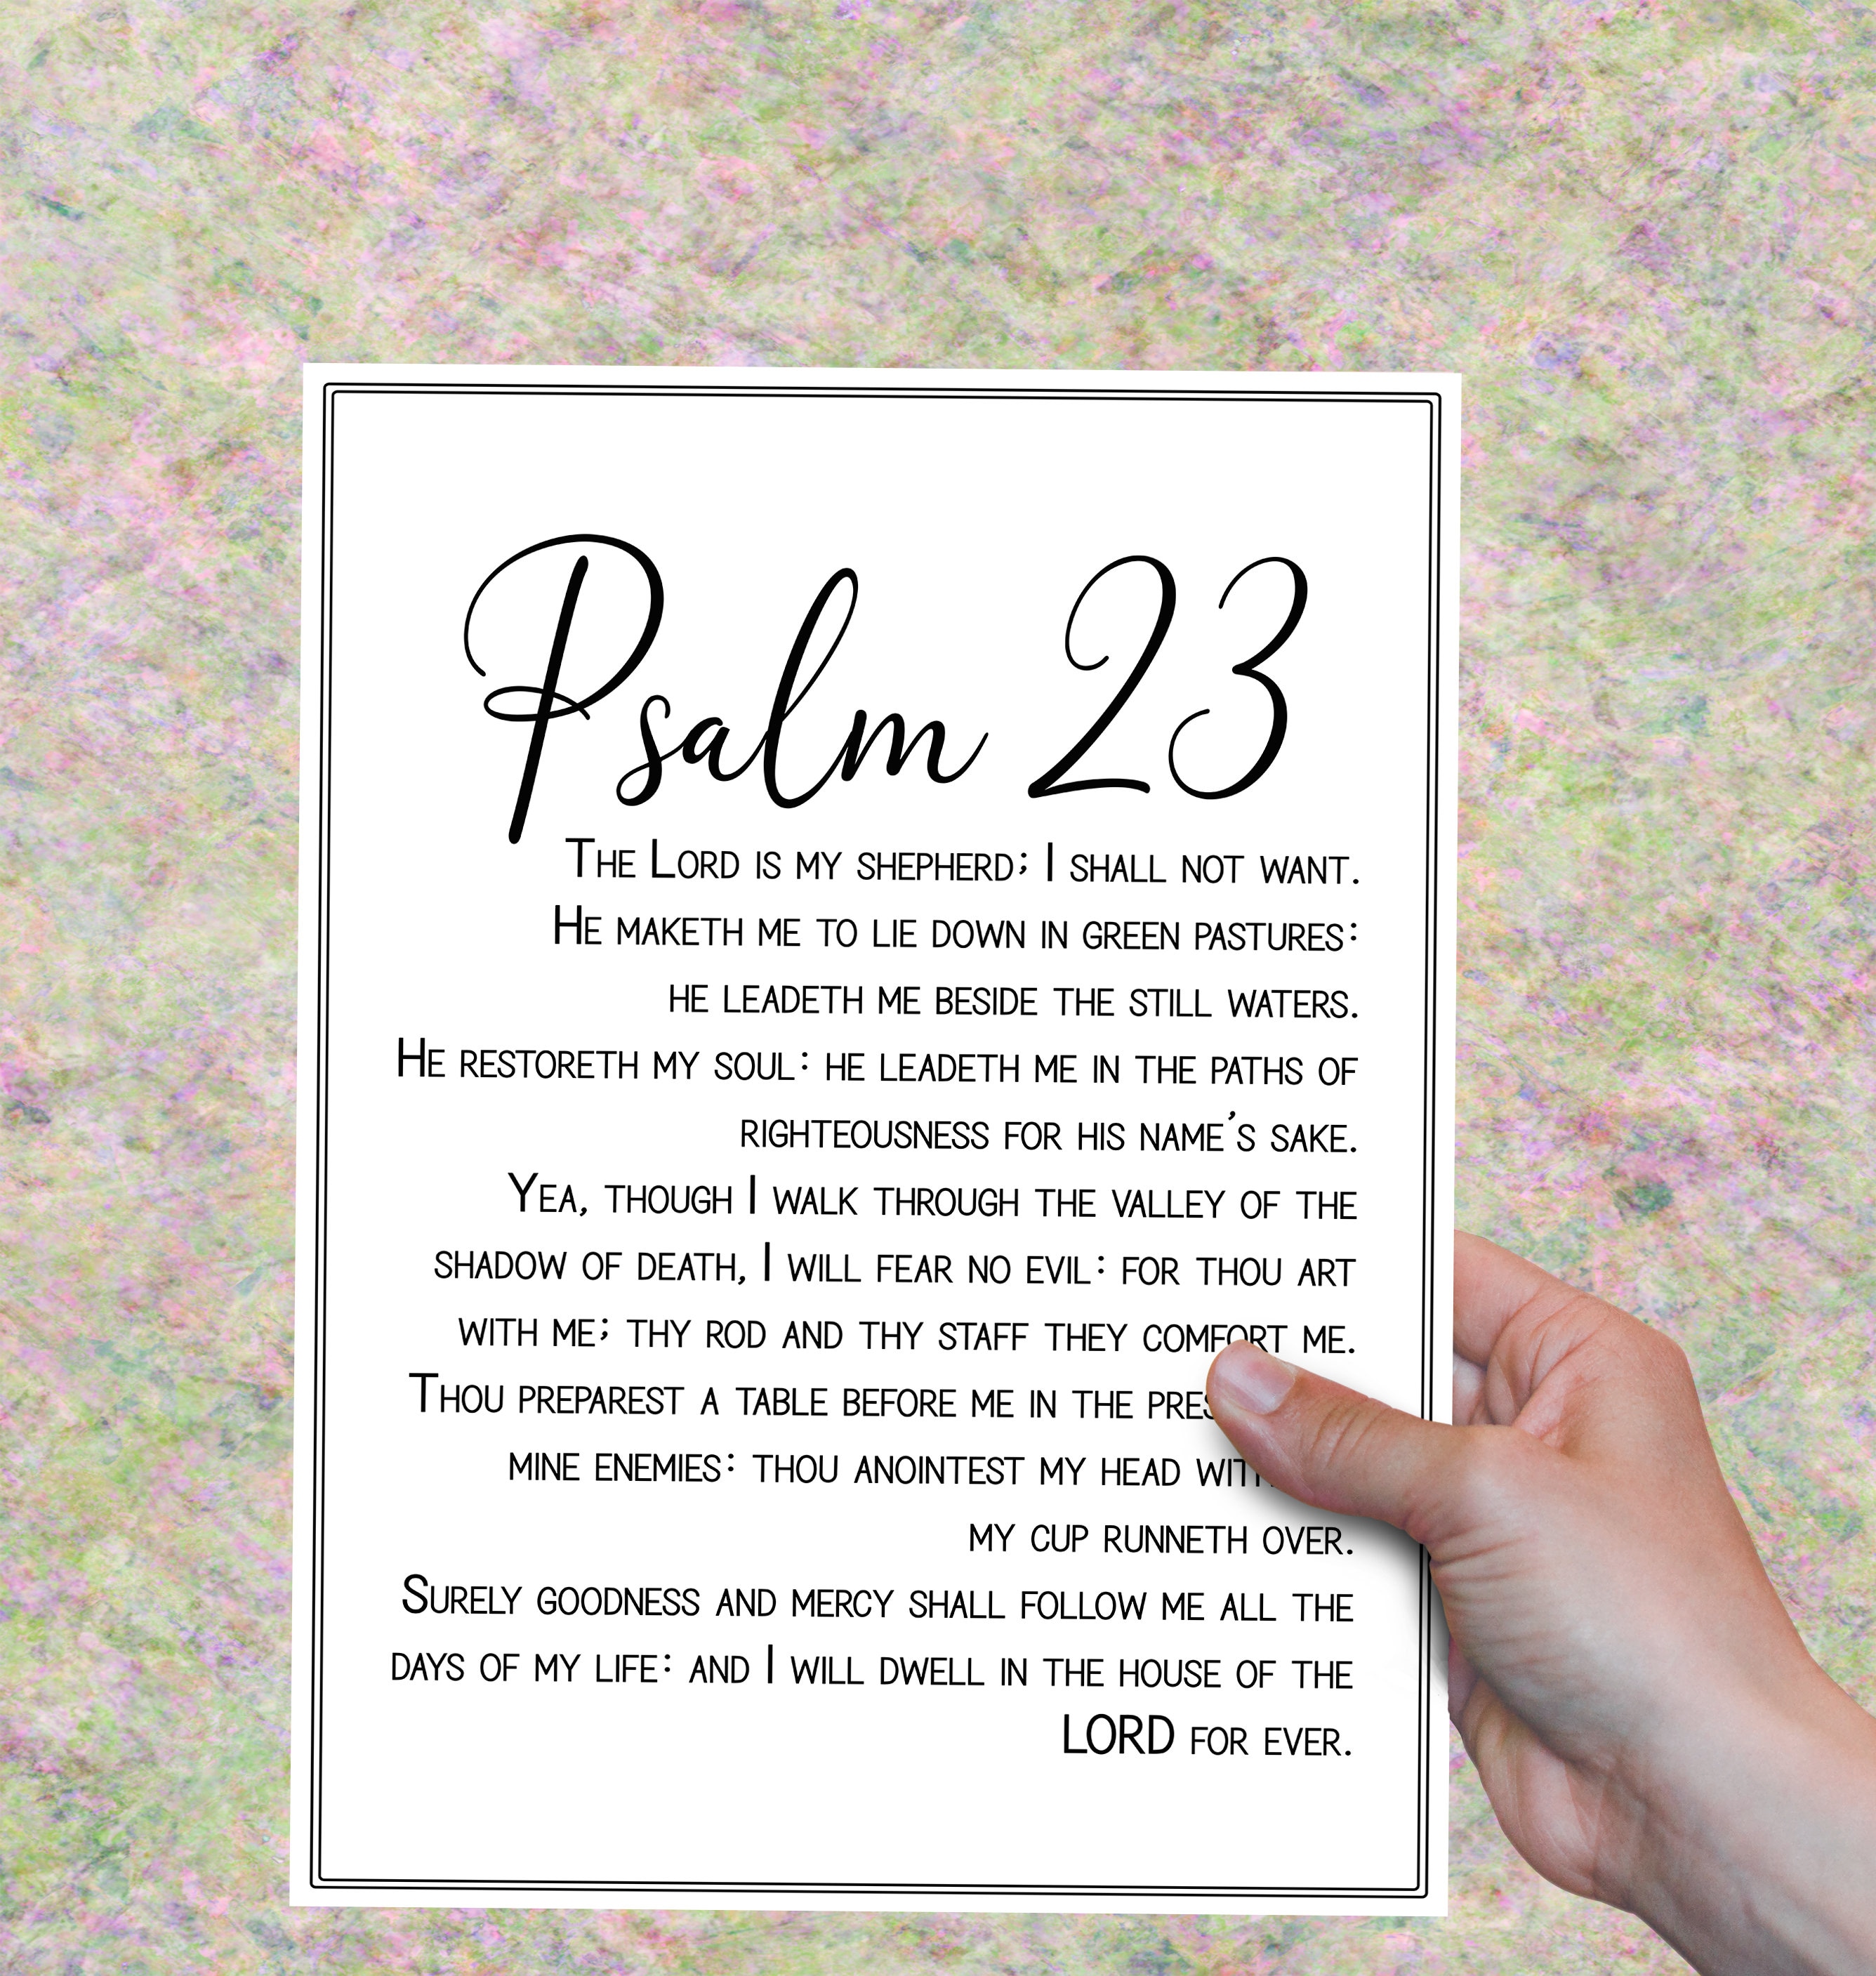 Psalm 23
The Lord is my shepherd; I shall not want.
He maketh me to lie down in green pastures:
he leadeth me beside the still waters.
He restoreth my soul: he leadeth me in the paths of
righteousness for his name's sake.
Yea, though I walk through the valley of the
shadow of death, I will fear no evil: for thou art
with me; thy rod and thy staff they comfort me.
Thou preparest a table before me in the
mine enemies: thou anointest my head
my cup runneth over.
Surely goodness and mercy shall follow me all the
days of my life: and I will dwell in the house of the
LORD for ever.